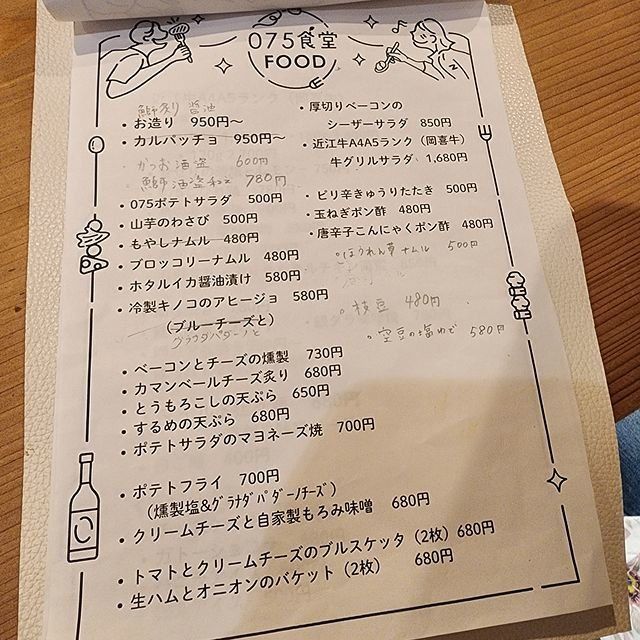 075食堂
FOOD
鰤炙り 醤油
・お造り 950円～
・カルパッチョ 950円～
かつお酒盗 600円
鰤酒盗和え 780円
・075ポテトサラダ 500円
・山芋のわさび 500円
・もやしナムル 480円
・ブロッコリーナムル 480円
・ホタルイカ醤油漬け 580円
・冷製キノコのアヒージョ 580円
(ブルーチーズと)
グラナダパダーノと
・厚切りベーコンの
シーザーサラダ 850円
・近江牛A4A5ランク（岡喜牛）
牛グリルサラダ 1,680円
・ピリ辛きゅうりたたき 500円
・玉ねぎポン酢 480円
・唐辛子こんにゃくポン酢 480円
・ほうれん草ナムル 500円
・枝豆 480円
・空豆の塩ゆで 580円
・ベーコンとチーズの燻製 730円
・カマンベールチーズ炙り 680円
・とうもろこしの天ぷら 650円
・するめの天ぷら 680円
・ポテトサラダのマヨネーズ焼 700円
・ポテトフライ 700円
(燻製塩&グラナダパダーノチーズ)
・クリームチーズと自家製もろみ味噌 680円
・トマトとクリームチーズのブルスケッタ（2枚）680円
・生ハムとオニオンのバケット（2枚） 680円